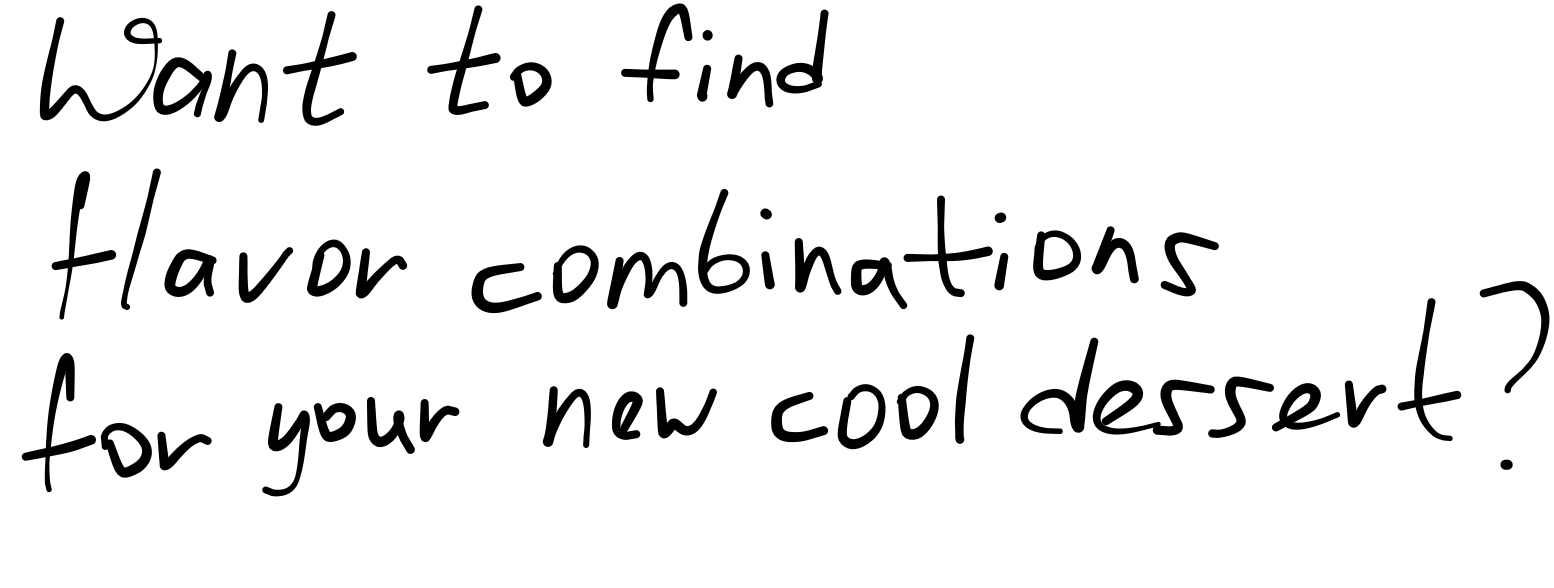 Want to find
flavor combinations
for your new cool dessert?